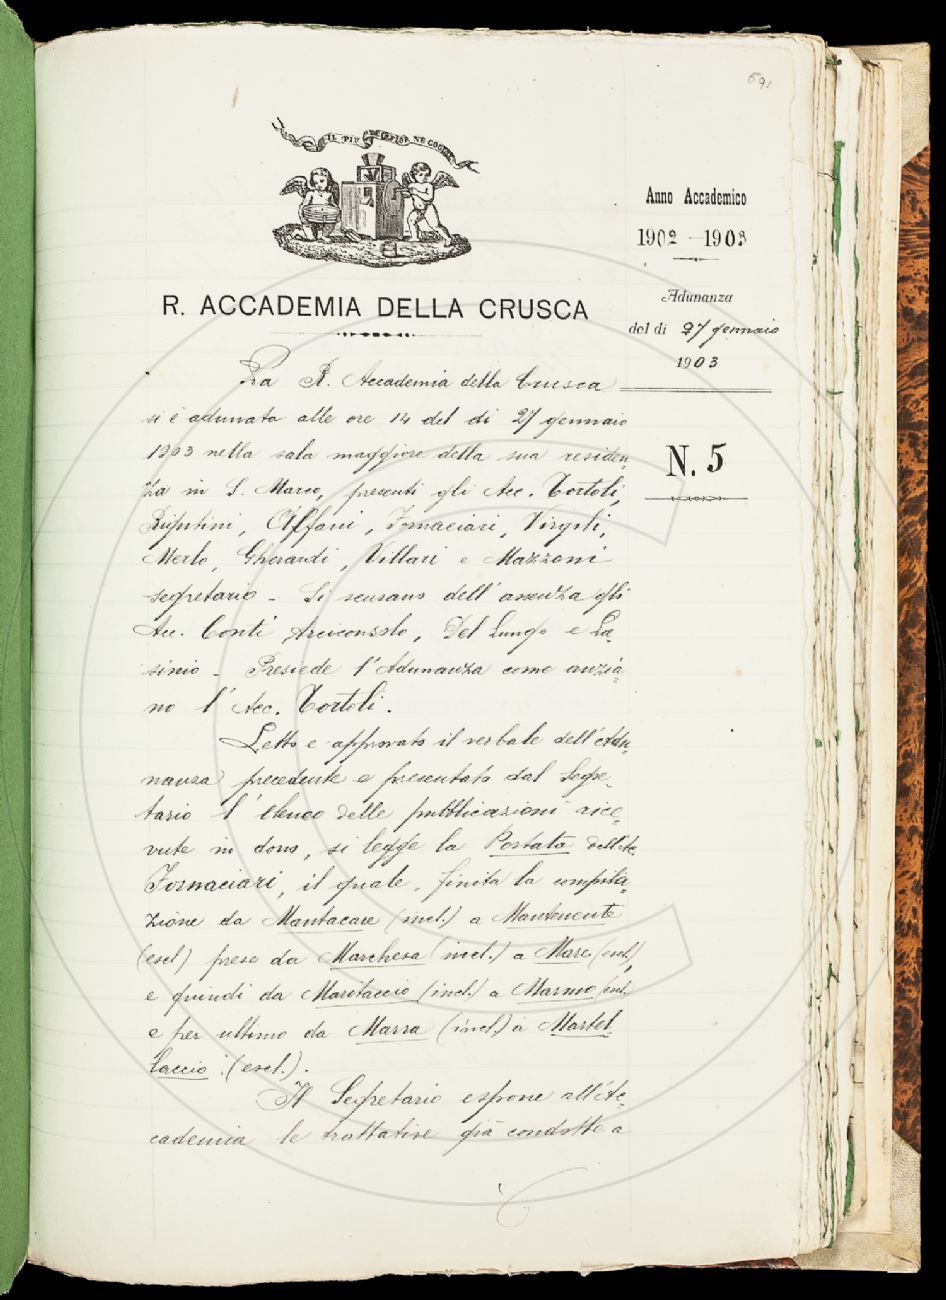 691
IL PIÙ BEL FIOR NE COGLIE
Anno Accademico
1902-1903
R. ACCADEMIA DELLA CRUSCA
Adunanza
del dì 27 gennaio
1903
N. 5
La R. Accademia della Crusca
si è adunata alle ore 14 del dì 27 gennaio
1903 nella sala maggiore della sua residen-
za in S. Marco, presenti gli Acc. Tortoli,
Rigutini, Alfani, Fornaciari, Virgili,
Merlo, Gherardi, Villari e Mazzoni
segretario - Si scusano dell'assenza gli
Acc. Conti Arciconsolo, Del Lungo e La-
sinio - Presiede l'Adunanza come anzia-
no l'Acc. Tortoli.
Letto e approvato il verbale dell'Adu-
nanza precedente e presentato dal Segre-
tario l'elenco delle pubblicazioni rice-
vute in dono, si legge la Postata dell'Ac.
Fornaciari, il quale, finita la compila-
zione da Mantacare (incl.) a Mantenente
(escl) prese da Marchesa (incl.) a Mare (escl.),
e quindi da Maritaccio (incl.) a Marmo (incl.
e per ultimo da Marra (incl.) a Martel-
laccio (escl.).
Il Segretario espone all'Ac-
cademia le trattative già condotte a